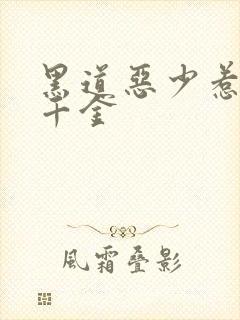 黑道惡少惹
千金
風霜疊影